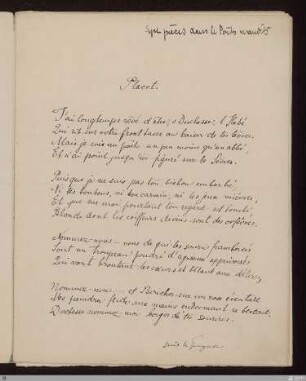 Sept pièces dans le Poètes maudits
Placet.
J'ai longtemps rêvé d'être, ô Duchesse, l'Hébé
Qui rit sur votre tasse au baiser de tes lèvres.
Mais je suis un poète, un peu moins qu'un abbé,
Et n'ai point jusqu'ici figuré sur le Sèvres.
Puisque je ne suis pas ton bichon embarbé
Ni tes bonbons, ni ton carmin, ni les jeux mièvres,
Et que sur moi pourtant ton regard est tombé
Blonde dont les coiffeurs divins sont des orfèvres,
Nommez-nous — vous de qui les souris framboisés
Sont un troupeau poudré d'agneaux apprivoisés
Qui vont broutant les cœurs et bêlant aux délires,
Nommez-nous — et Boucher sur un rose éventail
Me peindra flûte aux mains endormant ce bercail,
Duchesse, nommez-moi berger de tes sourires.